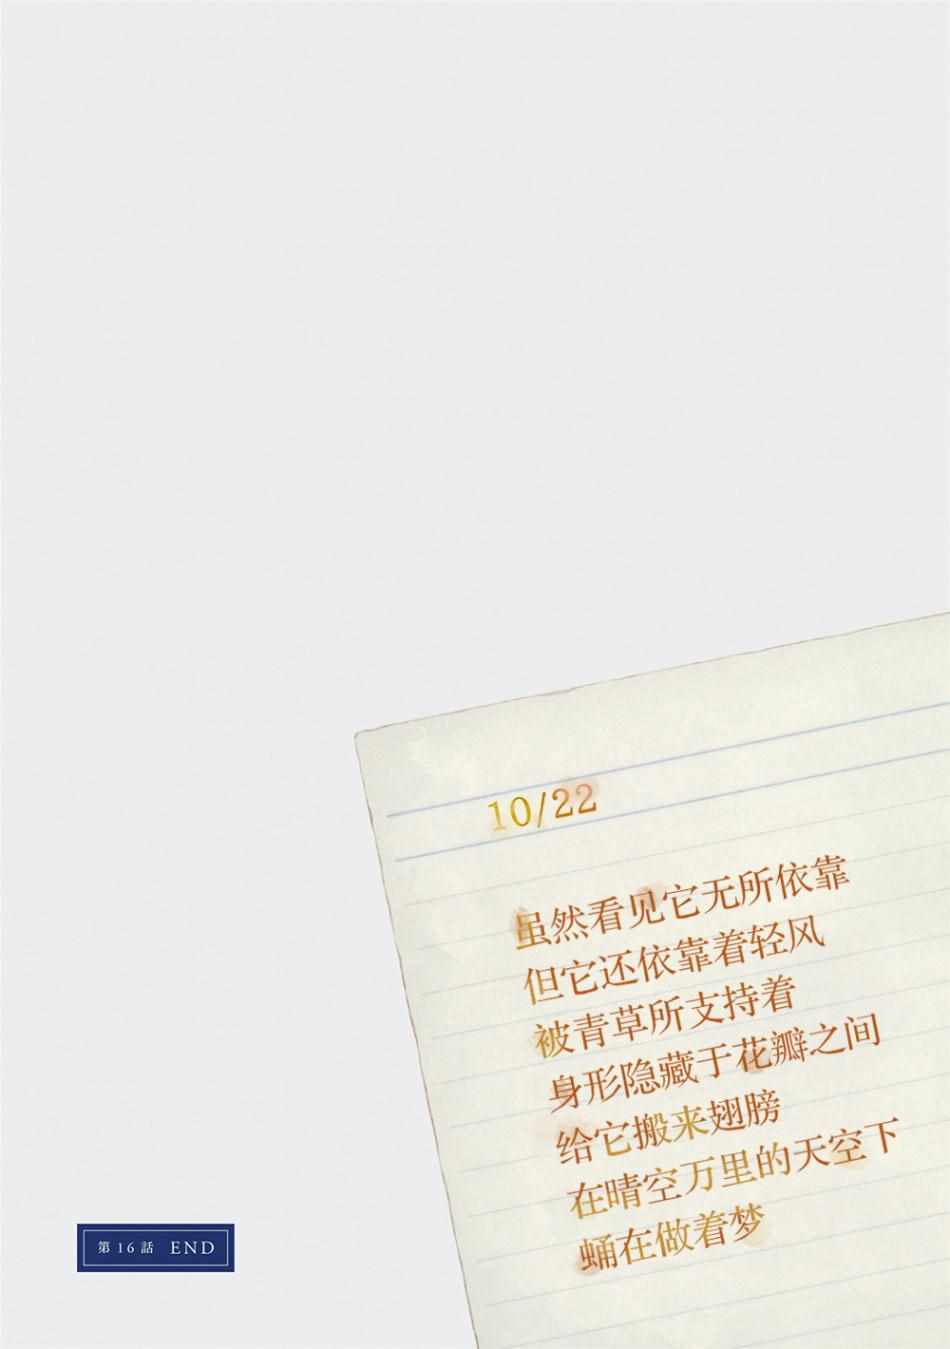 10/22
虽然看见它无所依靠
但它还依靠着轻风
被青草所支持着
身形隐藏于花瓣之间
给它搬来翅膀
在晴空万里的天空下
蛹在做着梦
第16話 END